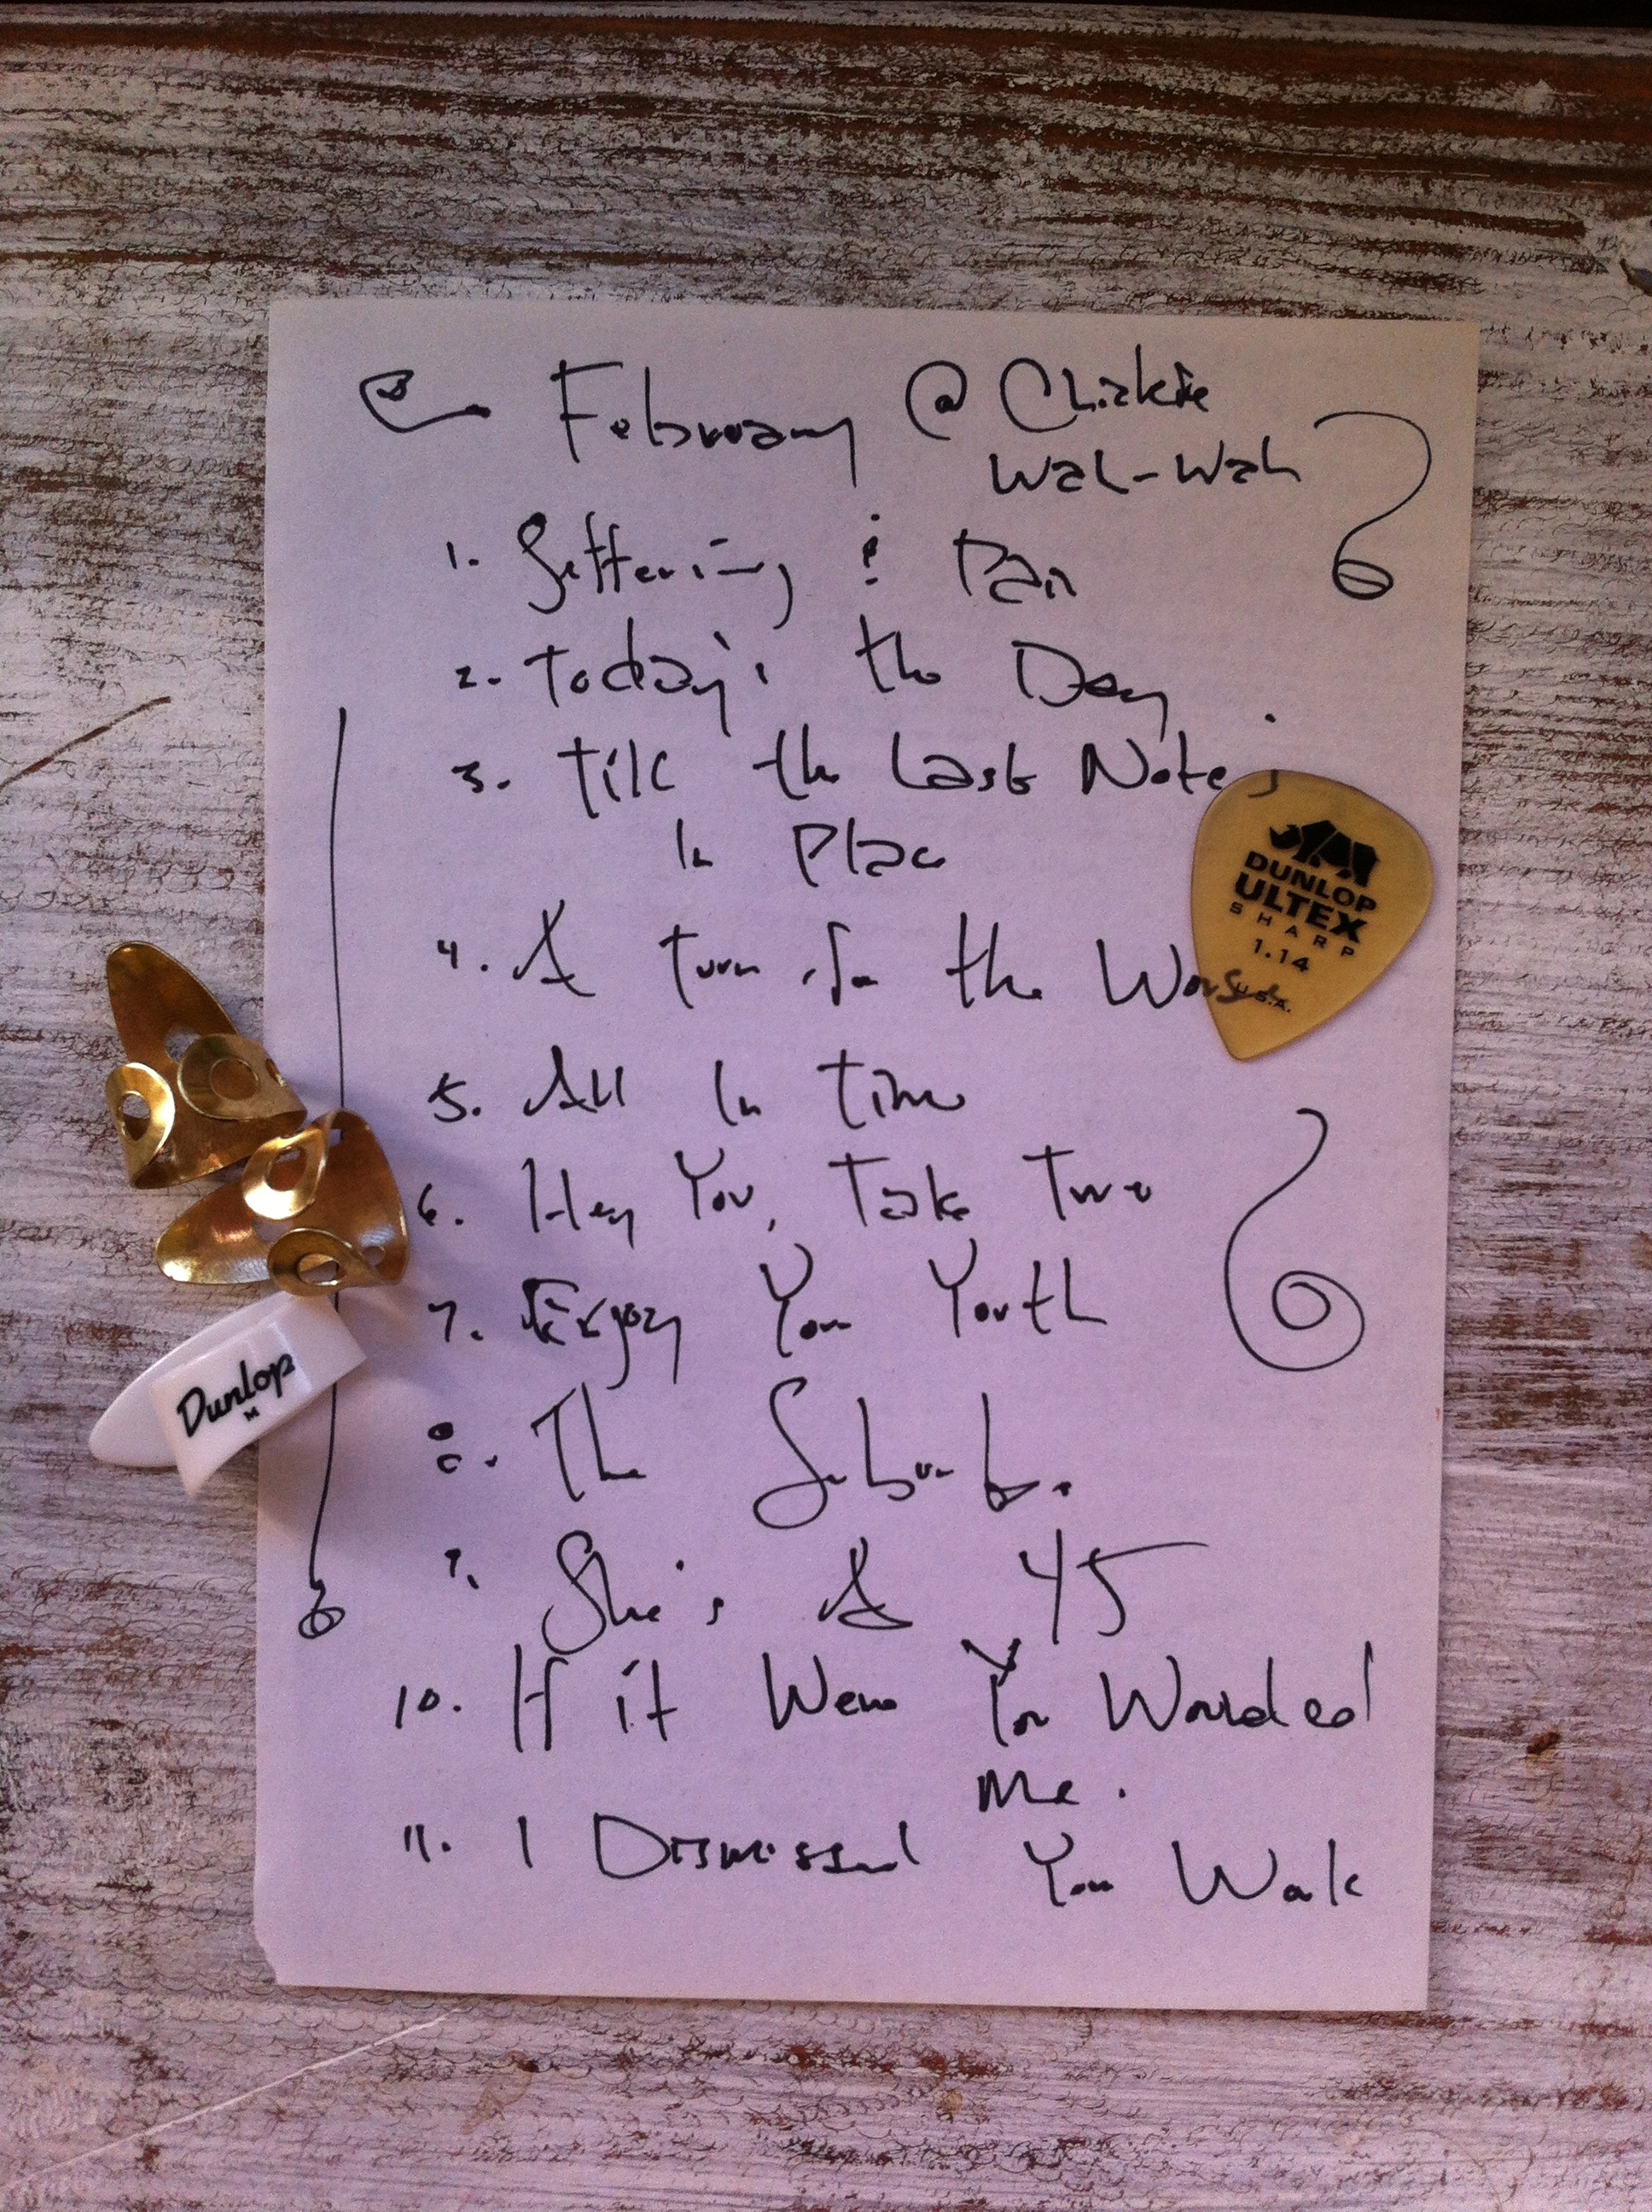 February @ Chickie
Wah-Wah
1. Suffering & Pain
2. Today's the Day
3. Till the Last Note's
In Place
4. A Turn for the Worse
5. All In Time
6. Hey You, Take Two
7. Enjoy Your Youth
8. The Suburbs
9. She's A 45
10. If it Were You Wounded
Me.
11. I Dismissed Your Walk
DUNLOP
ULTEX
SHARP
1.14
U.S.A.
Dunlop
M